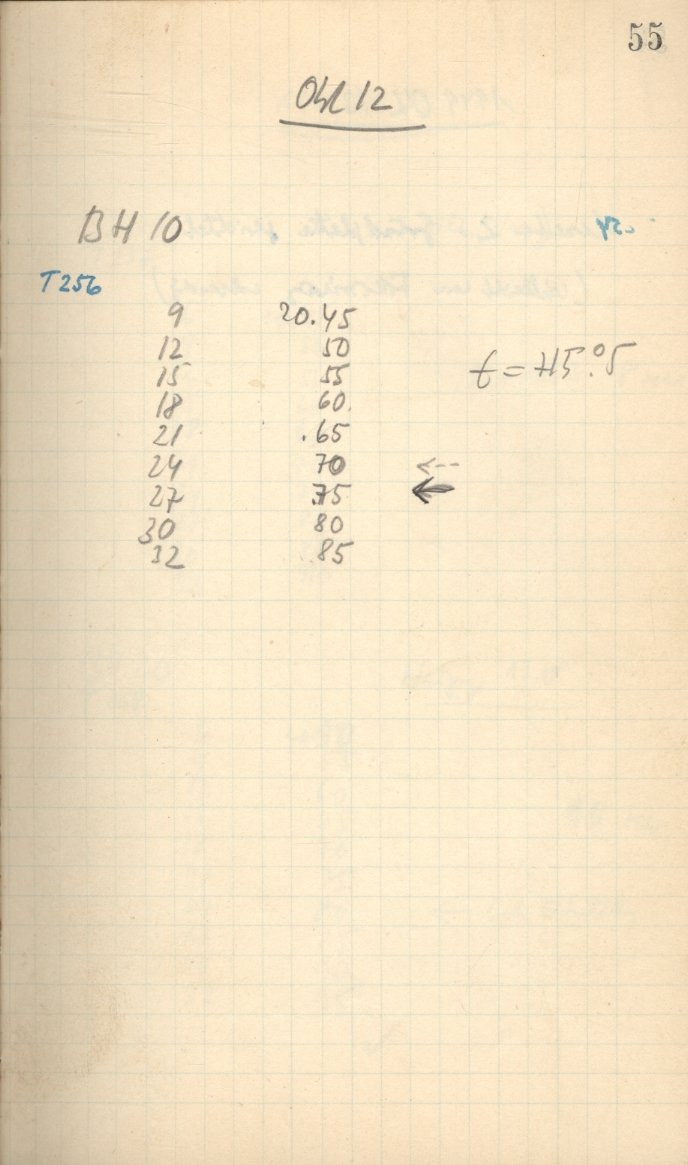 55
Okt 12
BH 10
T256
9 20.45
12 50
15 55
t = +15°.5
18 60.
21 .65
24 70 <--
27 .75 ←
30 80
32 85